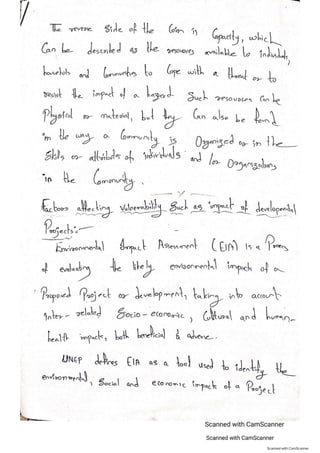 The reverse side of the Coin is Capacity, which
Can be described as the resources available to individuals,
households and Communities to Cope with a threat or to
resist the impact of a hazard. Such resources can be
Physical or material, but they Can also be found
in the way a Community is Organized or in the
Skills or attributes of individuals and/or Organizations
in the Community.
Factors affecting Vulnerability Such as impact of developmental
Projects:-
Environmental Impact Assessment (EIA) is a Process
of evaluating the likely environmental impacts of a
Proposed Project or development, taking into account
inter-related Socio-economic, Cultural and human-
health impacts, both beneficial & adverse.
UNEP defines EIA as a tool used to identify the
environmental, Social and economic impacts of a Project
Scanned with CamScanner
Scanned with CamScanner
Scanned with CamScanner